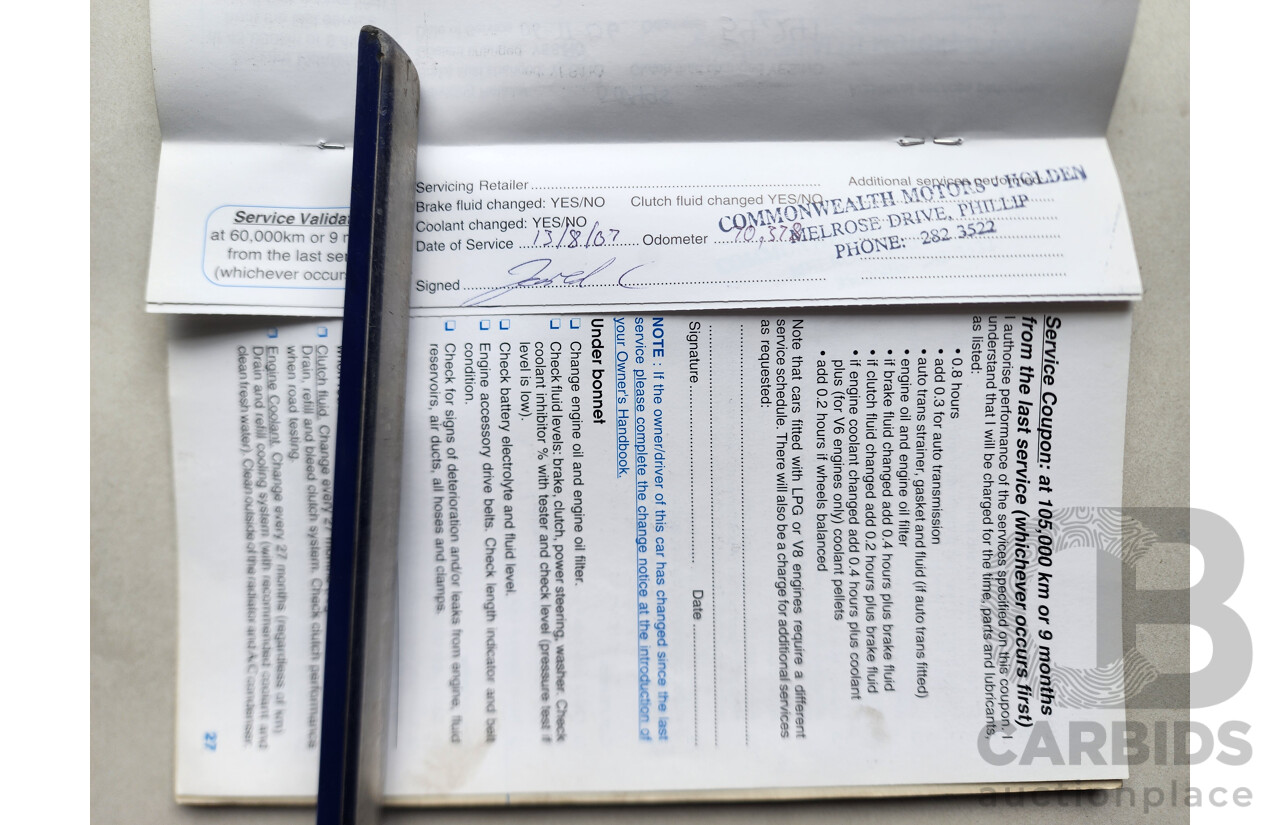 Servicing Retailer
Additional services performed
Brake fluid changed: YES/NO Clutch fluid changed YES/NO
Coolant changed: YES/NO
Date of Service 13/8/07 Odometer 70,378
Signed
COMMONWEALTH MOTORS - HOLDEN
MELROSE DRIVE, PHILLIP
PHONE: 282 3522
Service Validat
at 60,000km or 9 m
from the last ser
(whichever occur
Service Coupon: at 105,000 km or 9 months
from the last service (whichever occurs first)
I authorise performance of the services specified on this coupon. I
understand that I will be charged for the time, parts and lubricants,
as listed:
• 0.8 hours
• add 0.3 for auto transmission
• auto trans strainer, gasket and fluid (if auto trans fitted)
• engine oil and engine oil filter
• if brake fluid changed add 0.4 hours plus brake fluid
• if clutch fluid changed add 0.2 hours plus brake fluid
• if engine coolant changed add 0.4 hours plus coolant
plus (for V6 engines only) coolant pellets
• add 0.2 hours if wheels balanced
Note that cars fitted with LPG or V8 engines require a different
service schedule. There will also be a charge for additional services
as requested:
Signature Date
NOTE : If the owner/driver of this car has changed since the last
service please complete the change notice at the introduction of
your Owner's Handbook.
Under bonnet
❑ Change engine oil and engine oil filter.
❑ Check fluid levels: brake, clutch, power steering, washer. Check
coolant inhibitor % with tester and check level (pressure test if
level is low).
❑ Check battery electrolyte and fluid level.
❑ Engine accessory drive belts. Check length indicator and belt
condition.
❑ Check for signs of deterioration and/or leaks from engine, fluid
reservoirs, air ducts, all hoses and clamps.
❑ Clutch fluid. Change every 27
Drain, refill and bleed clutch system. Check clutch performance
when road testing.
❑ Engine Coolant. Change every 27 months (regardless of km)
Drain and refill cooling system (with recommended coolant and
clean fresh water). Clean outside of the radiator and A/C condenser.
27
CARBIDS
auctionplace